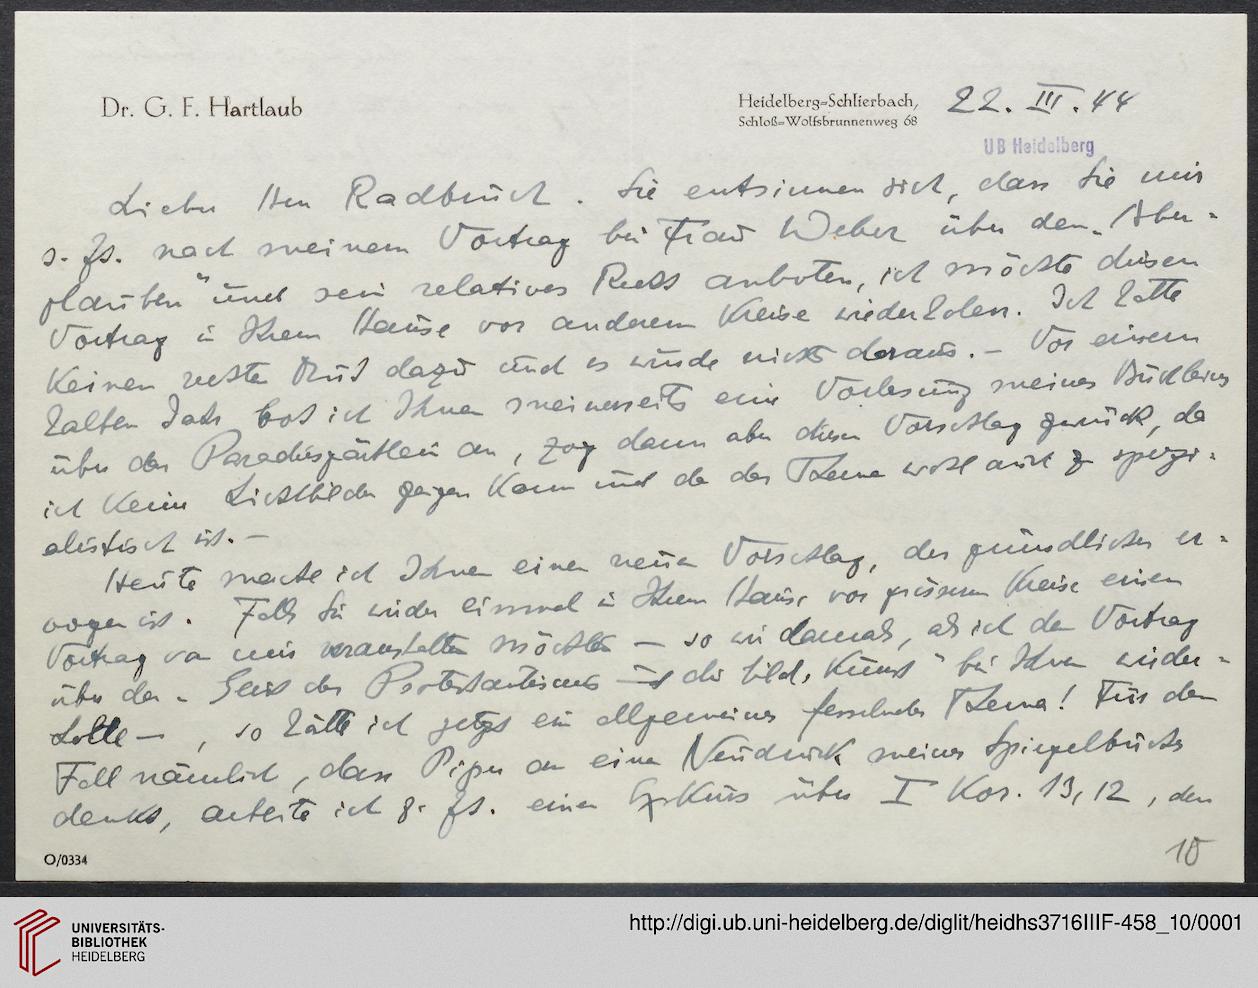 Dr. G. F. Hartlaub
Heidelberg-Schlierbach,
Schloß-Wolfsbrunnenweg 68
22. III. 44
UB Heidelberg
Lieber Herr Radbruch. Sie entsinnen sich, dass Sie mir
s. Zs. nach meinem Vortrag bei Frau Weber über den „Aber-
glauben" und sein relatives Recht anboten, ich möchte diesen
Vortrag in Ihrem Hause vor anderem Kreise wiederholen. Ich hatte
keinen rechten Mut dazu und es wurde nichts daraus. – Vor einem
halben Jahr bot ich Ihnen meinerseits eine Vorlesung meines Büchleins
über das Paradiesgärtlein an, zog dann aber diesen Vorschlag zurück, da
ich keine Lichtbilder zeigen kann und da das Thema wohl auch zu spezi-
alistisch ist. –
Heute mache ich Ihnen einen neuen Vorschlag, der gründlicher er-
wogen ist. Falls Sie wieder einmal in Ihrem Hause vor grösserem Kreise einen
Vortrag von mir veranstalten möchten – so wie damals, als ich den Vortrag
über den „Geist des Protestantismus und die bild. Kunst" bei Ihnen wieder-
holte –, so hätte ich jetzt ein allgemeines fesselndes Thema! Für den
Fall nämlich, dass Piper an einen Neudruck meines Spiegelbuchs
denkt, arbeite ich z. Zs. einen Exkurs über I Kor. 13, 12, den
O/0334
10
UNIVERSITÄTS-
BIBLIOTHEK
HEIDELBERG
http://digi.ub.uni-heidelberg.de/diglit/heidhs3716IIIF-458_10/0001